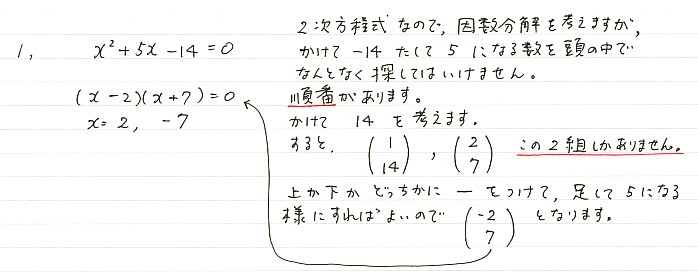 1, x²+5x-14=0
(x-2)(x+7)=0
x=2, -7
2次方程式なので, 因数分解を考えますが,
かけて -14 たして 5 になる数を頭の中で
なんとなく探してはいけません。
順番があります。
かけて 14 を考えます。
すると, (1 14), (2 7) この2組しかありません。
上か下か どっちかに ー をつけて, 足して5になる
様にすればよいので (-2 7) となります。